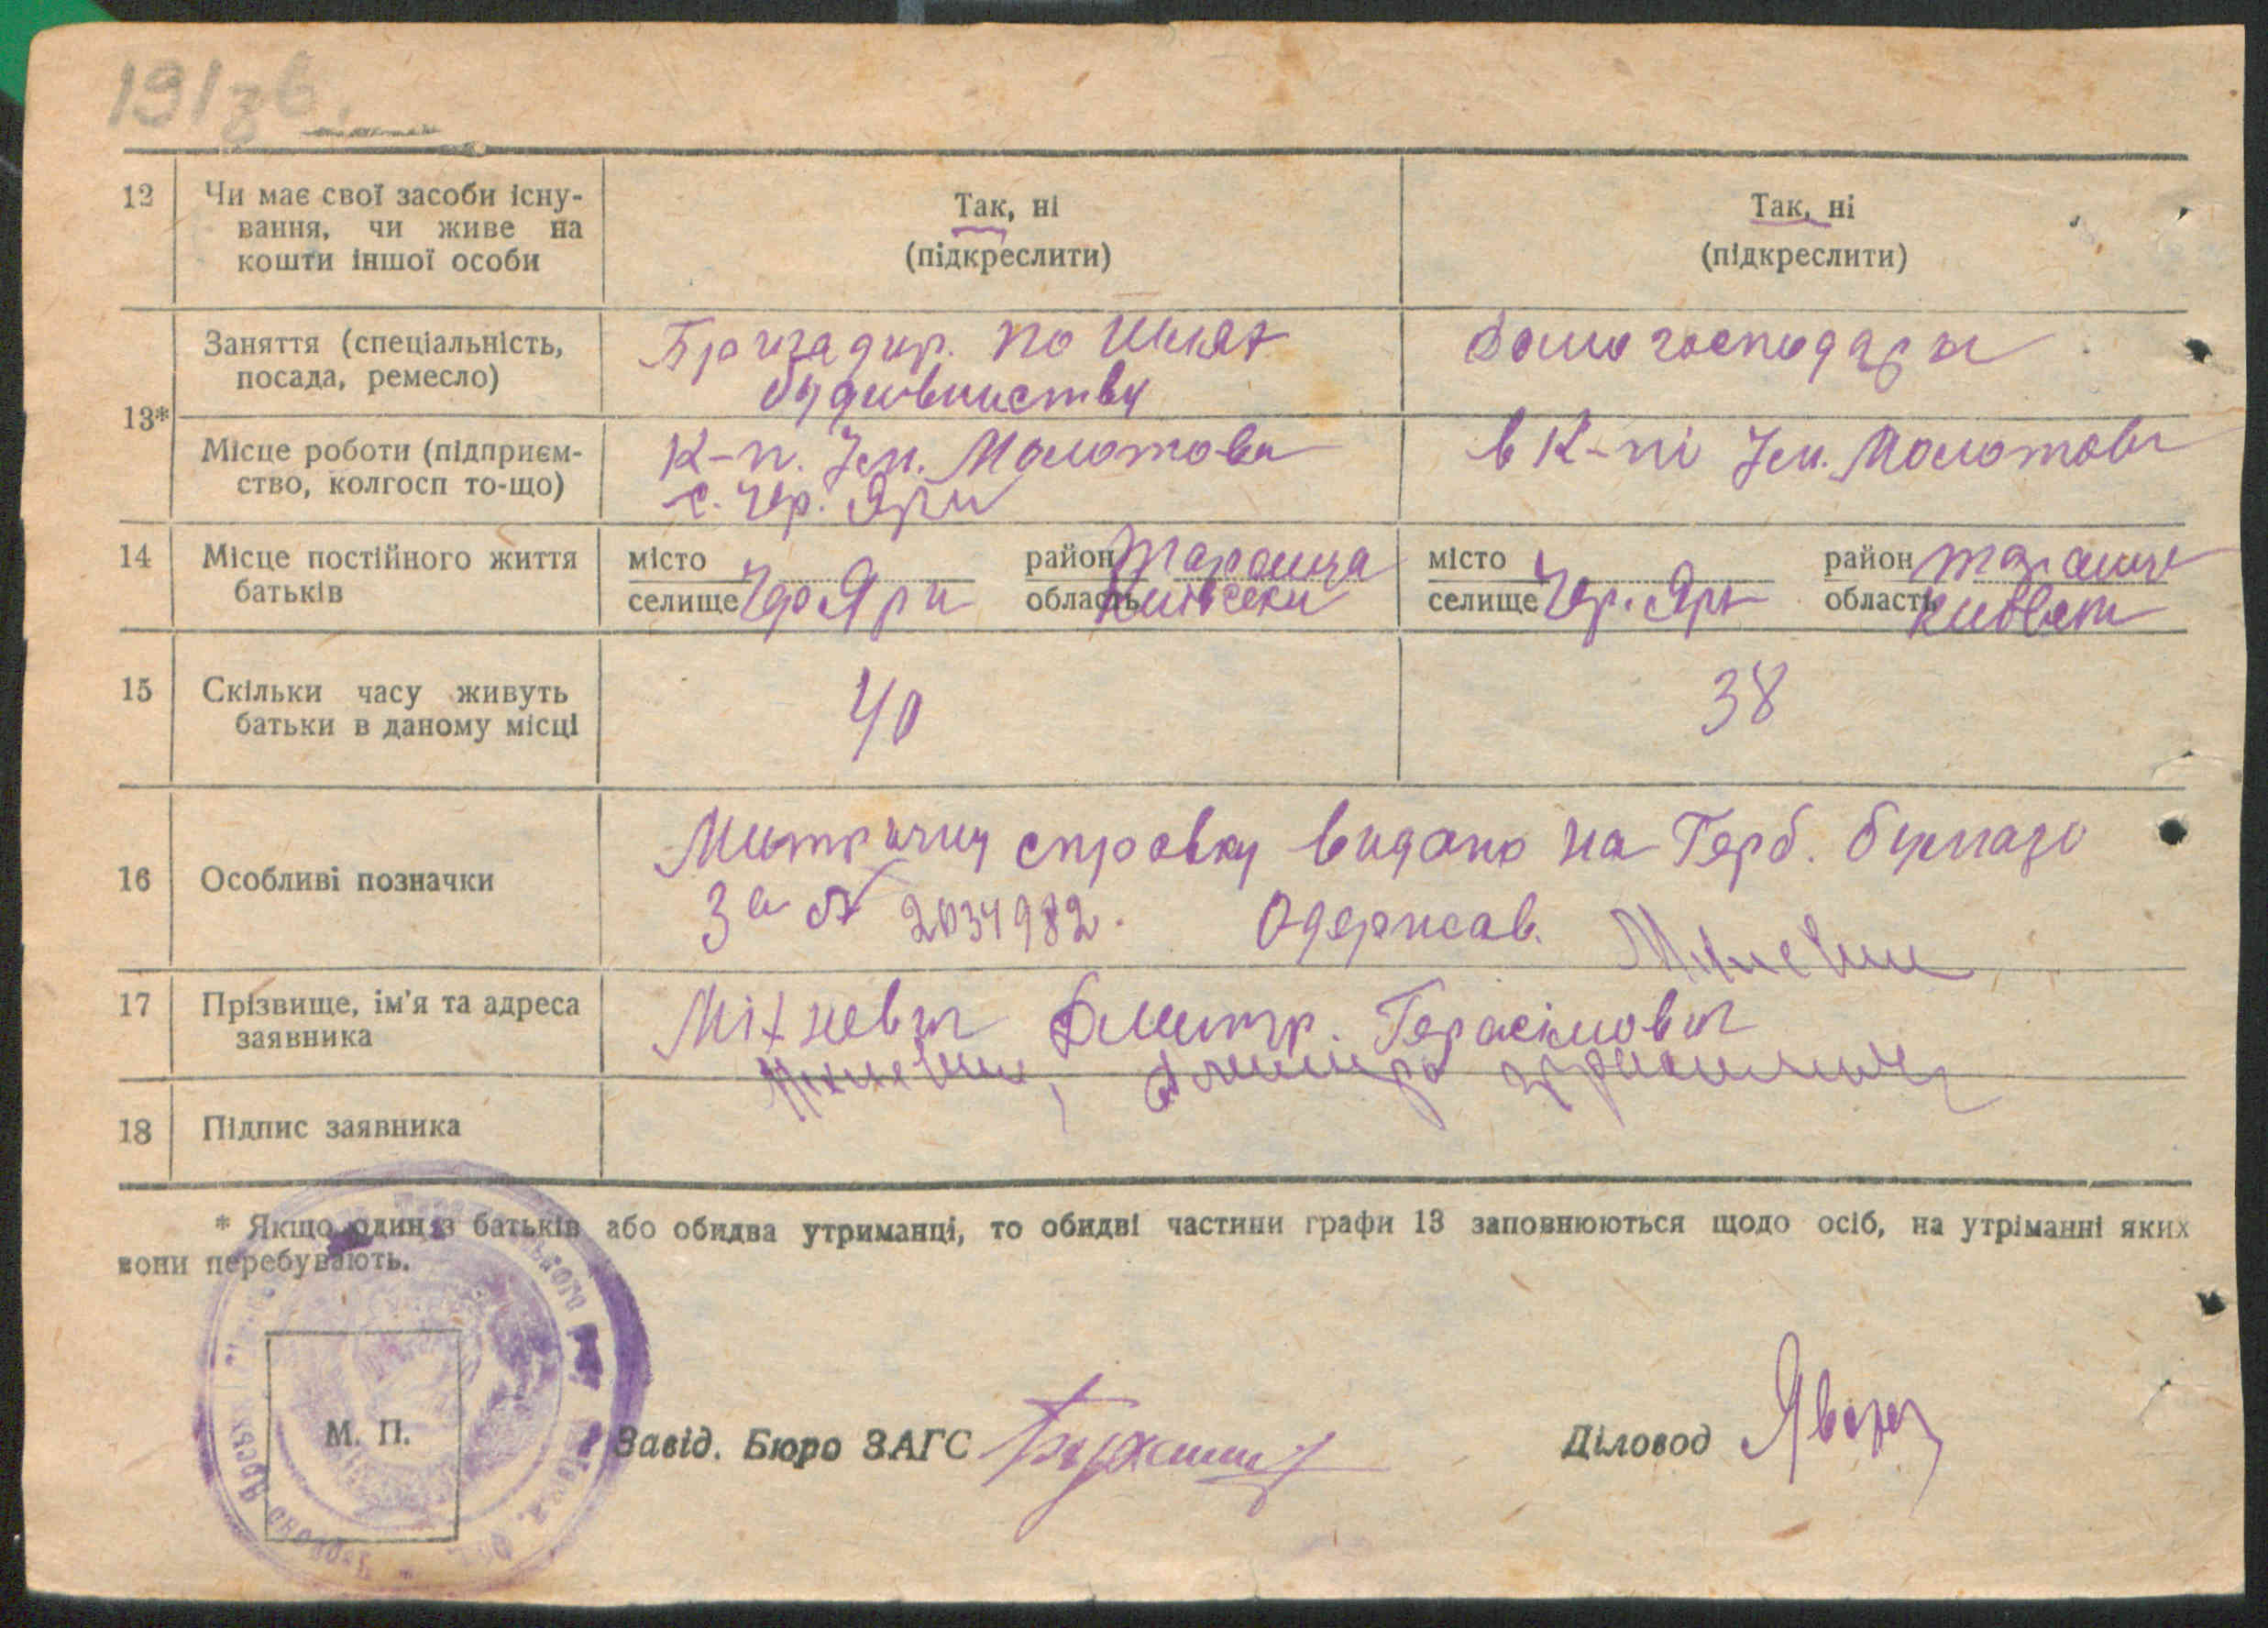 191зв.
12 Чи має свої засоби існу-
вання, чи живе на
кошти іншої особи
Так, ні
(підкреслити)
Так, ні
(підкреслити)
13*
Заняття (спеціальність,
посада, ремесло)
Бригадир. по шлях
будивництву
домогосподарки
Місце роботи (підприєм-
ство, колгосп то-що)
К-п. Ім. Молотова
с. Чер. Яри
в К-пі Ім. Молотова
14 Місце постійного життя
батьків
місто
селище Чер. Яри
район Тараща
область Київськ
місто
селище Чер. Яри
район Тараща
область Київськ
15 Скільки часу живуть
батьки в даному місці
40
38
16 Особливі позначки
Митричну справку видано на Герб. бумазі
За № 2034982. Одержав. Міхневич
17 Прізвище, ім'я та адреса
заявника
Міхневич Дмитр. Герасімович
18 Підпис заявника
Міхневич,
* Якщо один із батьків або обидва утриманці, то обидві частини графи 13 заповнюються щодо осіб, на утріманні яких
вони перебувають.
М. П.
Завід. Бюро ЗАГС
Діловод